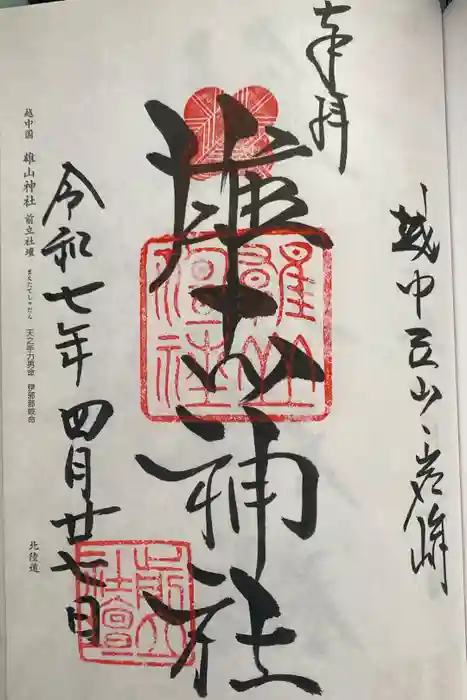 奉拝
越中立山岩峅
雄山神社
雄山神社
前立社壇
令和七年四月廿七日
越中国 雄山神社 前立社壇 まえたてしゃだん 天之手力男命 伊邪那岐命 北陸道